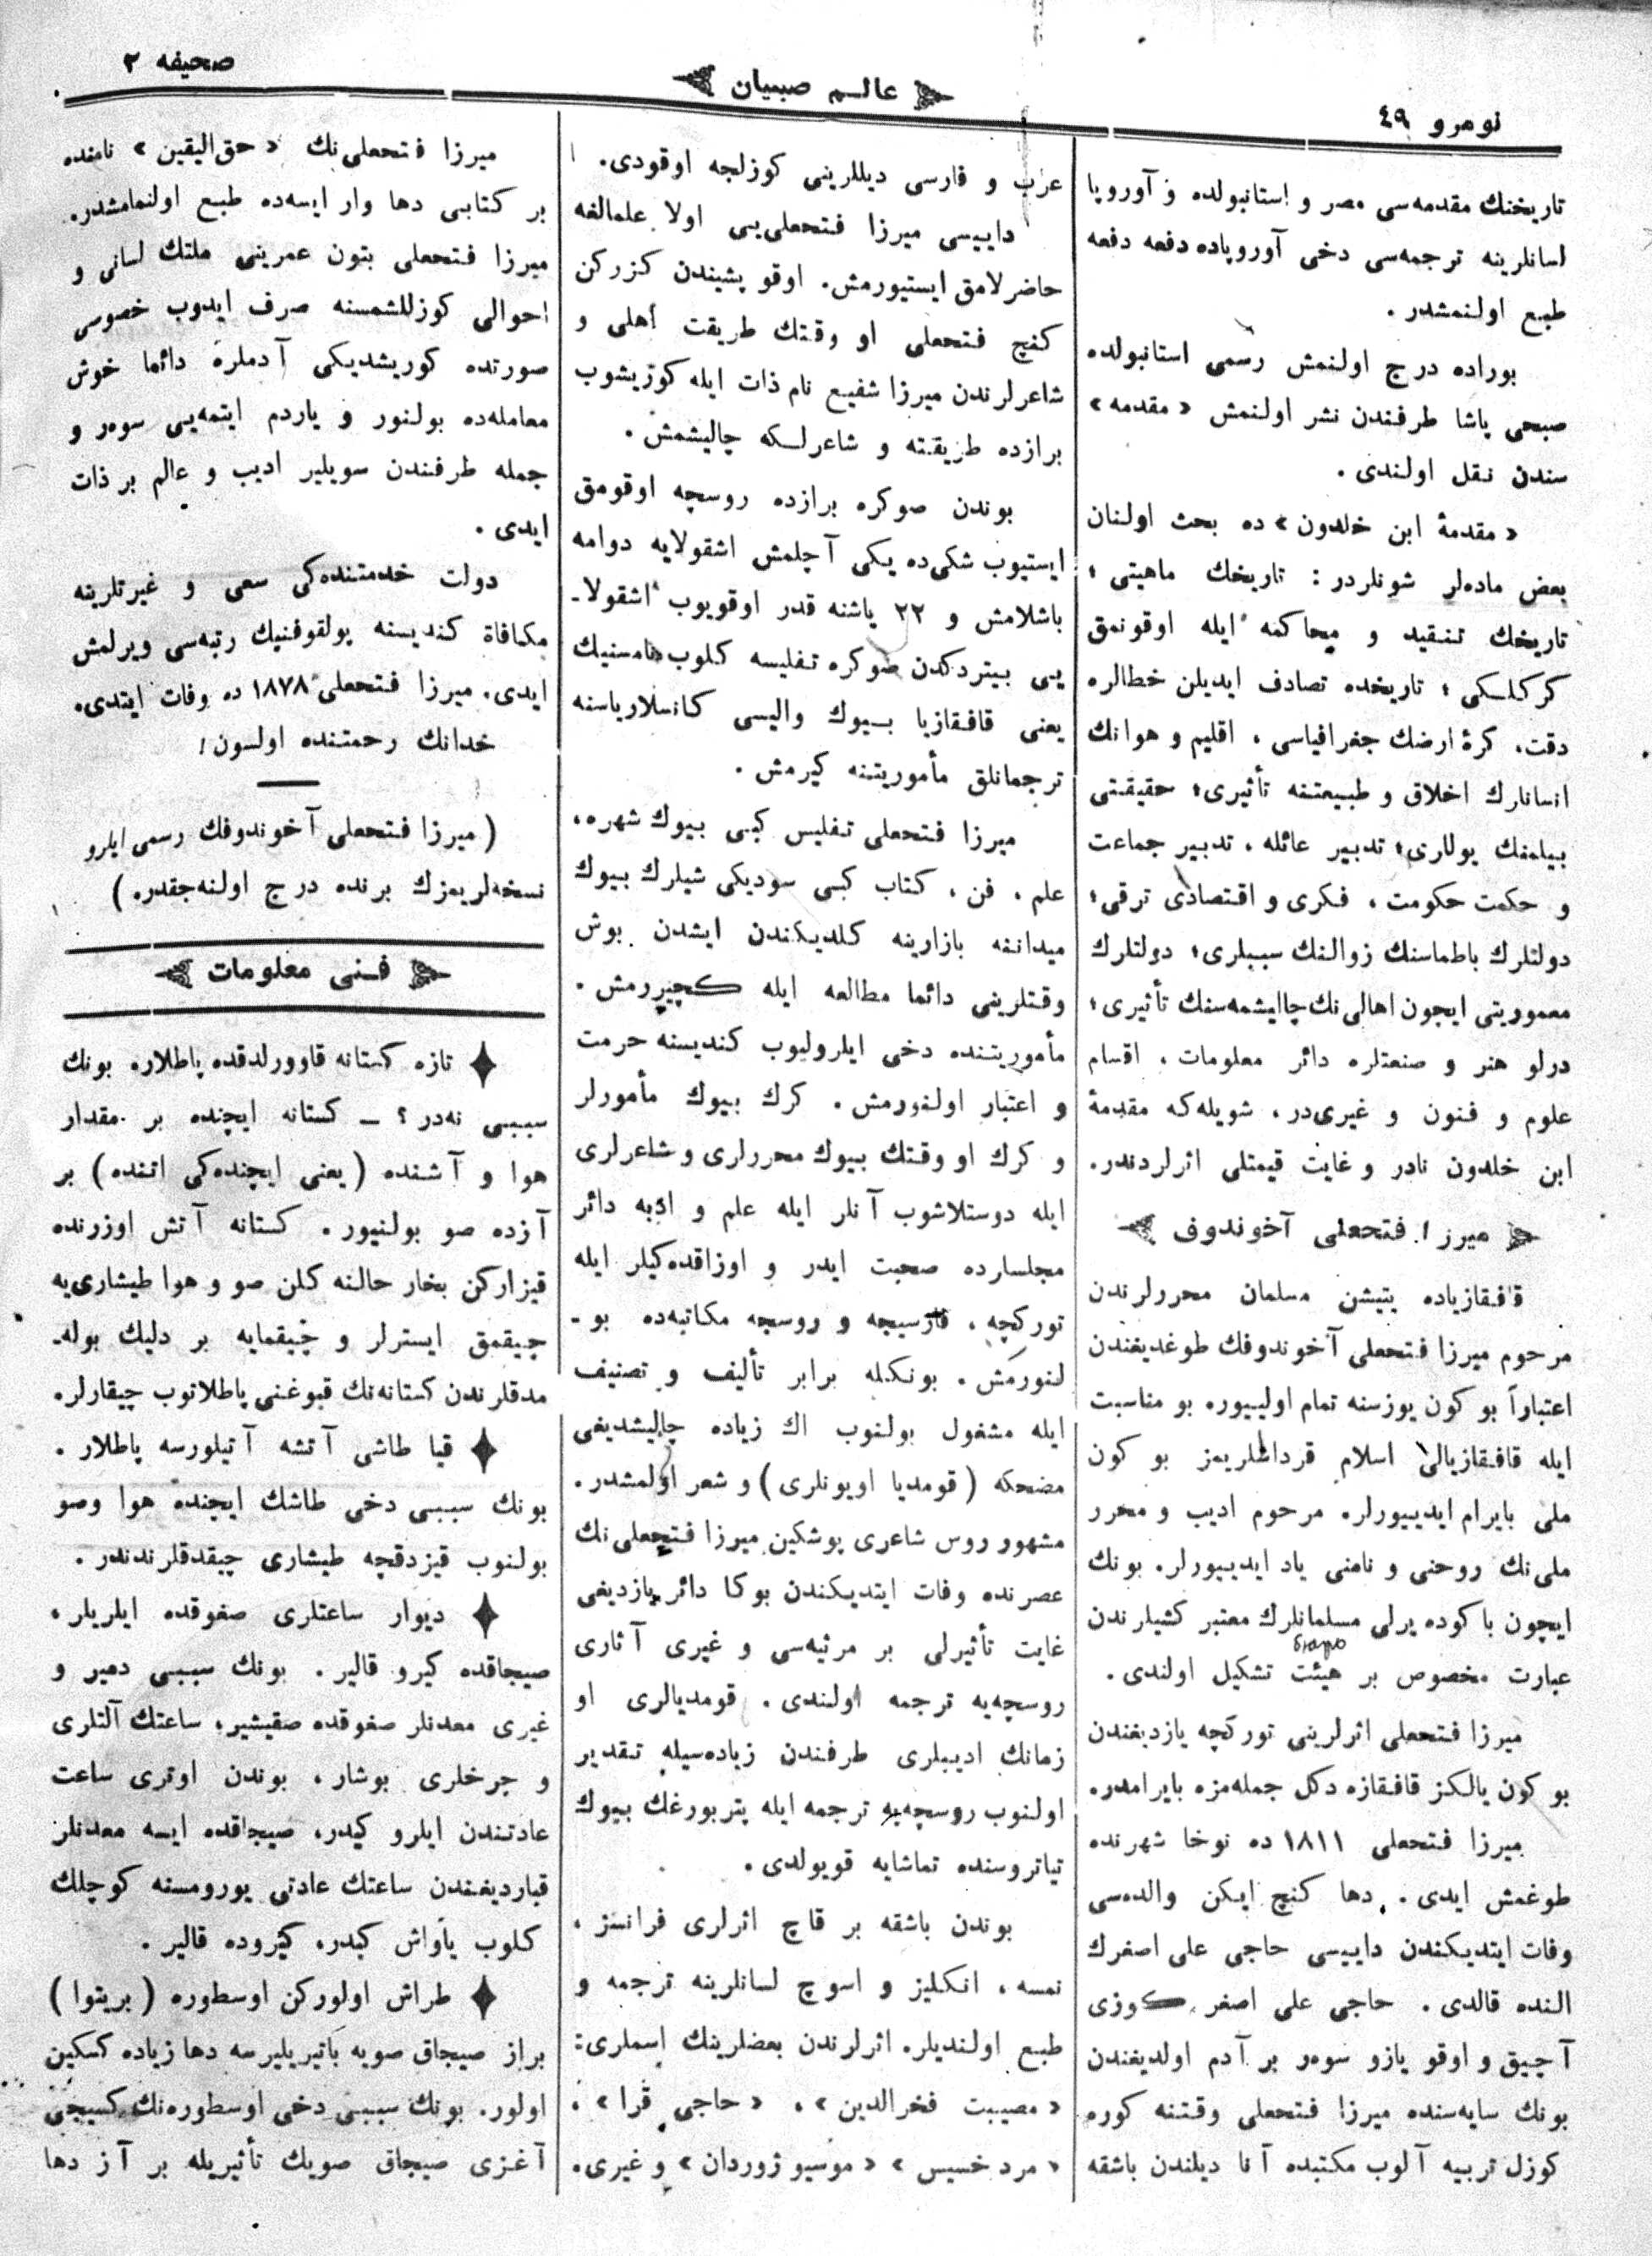 نومرو ٤٩
عالم صبيان
صحيفه ٢
تاريخنك مقدمه‌سى مصر و استانبولده و آوروپا
لسانلرينه ترجمه‌سى دخى آوروپاده دفعه دفعه
طبع اولنمشدر .
بوراده درج اولنمش رسمى استانبولده
صبحى پاشا طرفندن نشر اولنمش « مقدمه »
سندن نقل اولندى .
« مقدمۀ ابن خلدون » ده بحث اولنان
بعض ماده‌لر شونلردر : تاريخك ماهيتى ؛
تاريخك تنقيد و محاكمه ايله اوقونمق
كركلكى ؛ تاريخده تصادف ايديلن خطالره
دقت، كرۀ ارضك جغرافياسى ، اقليم و هوانك
انسانلرك اخلاق و طبيعتنه تأثيرى؛ حقيقتى
بيلمنك يوللرى؛ تدبير عائله ، تدبير جماعت
و حكمت حكومت ، فكرى و اقتصادى ترقى؛
دولتلرك باطماسنك زوالنك سببلرى؛ دولتلرك
معموريتى ايچون اهالى‌نك چاليشمه‌سنك تأثيرى؛
درلو هنر و صنعتلره دائر معلومات ، اقسام
علوم و فنون و غيرى‌در. شويله‌كه مقدمۀ
ابن خلدون نادر و غايت قيمتلى اثرلردندر.
ميرزا فتحعلى آخوندوف
قافقازياده يتيشن مسلمان محررلرندن
مرحوم ميرزا فتحعلى آخوندوفك طوغديغندن
اعتباراً بو كون يوزسنه تمام اولييور. بو مناسبت
ايله قافقازيالى اسلام قرداشلريمز بو كون
ملى بايرام ايدييورلر. مرحوم اديب و محرر
ملى‌نك روحنى و نامنى ياد ايدييورلر. بونك
ايچون باكوده يرلى مسلمانلرك معتبر كشيلرندن
عبارت مخصوص بر هيئت تشكيل اولندى .
ميرزا فتحعلى اثرلرينى توركچه يازديغندن
بو كون يالكز قافقازه دكل جمله‌مزه بايرامدر.
ميرزا فتحعلى ١٨١١ ده نوخا شهرنده
طوغمش ايدى . دها كنچ ايكن والده‌سى
وفات ايتديكندن داييسى حاجى على اصغرك
النده قالدى . حاجى على اصغر كوزى
آچيق و اوقو يازو سوه‌ر بر آدم اولديغندن
بونك سايه‌سنده ميرزا فتحعلى وقتنه كوره
كوزل تربيه آلوب مكتبده آنا ديلندن باشقه
عرب و فارسى ديللرينى كوزلجه اوقودى.
داييسى ميرزا فتحعلى‌يى اولا علمالغه
حاضرلامق ايستيورمش. اوقو پشيندن كزركن
كنچ فتحعلى او وقتك طريقت أهلى و
شاعرلرندن ميرزا شفيع نام ذات ايله كوريشوب
برازده طريقته و شاعرلكه چاليشمش .
بوندن صوكره برازده روسچه اوقومق
ايستيوب شكى‌ده يكى آچلمش اشقولايه دوامه
باشلامش و ٢٢ ياشنه قدر اوقويوب اشقولا-
يى بيتردكدن صوكره تفليسه كلوب نامسنيك
يعنى قافقازيا بيوك واليسى كانسلارياسنه
ترجمانلق مأموريتنه كيرمش .
ميرزا فتحعلى تفليس كبى بيوك شهره،
علم ، فن ، كتاب كبى سوديكى شيلرك بيوك
ميداننه بازارينه كلديكندن ايشدن بوش
وقتلرينى دائما مطالعه ايله كچيررمش .
مأموريتنده دخى ايلرولوب كنديسنه حرمت
و اعتبار اولنورمش. كرك بيوك مأمورلر
و كرك او وقتك بيوك محررلرى و شاعرلرى
ايله دوستلاشوب آنلر ايله علم و ادبه دائر
مجلسلرده صحبت ايدر و اوزاقده‌كيلر ايله
توركچه ، فارسيجه و روسجه مكاتبه‌ده بو-
لنورمش . بونكله برابر تأليف و تصنيف
ايله مشغول بولنوب اك زياده چاليشديغى
مضحكه ( قومديا اويونلرى ) و شعر اولمشدر.
مشهور روس شاعرى پوشكين ميرزا فتحعلى‌نك
عصرنده وفات ايتديكندن بوكا دائر يازديغى
غايت تأثيرلى بر مرثيه‌سى و غيرى آثارى
روسچه‌يه ترجمه اولندى . قومديالرى او
زمانك اديبلرى طرفندن زياده‌سيله تقدير
اولنوب روسچه‌يه ترجمه ايله پتربورغك بيوك
تياتروسنده تماشايه قويولدى .
بوندن باشقه بر قاچ اثرلرى فرانسز ،
نمسه ، انكليز و اسوچ لسانلرينه ترجمه و
طبع اولنديلر. اثرلرندن بعضلرينك اسملرى:
« مصيبت فخرالدين » ، « حاجى قرا » ،
« مرد خسيس » « موسيو ژوردان » و غيرى.
ميرزا فتحعلى‌نك « حق اليقين » نامنده
بر كتابى دها وار ايسه‌ده طبع اولنمامشدر.
ميرزا فتحعلى بتون عمرينى ملتك لسانى و
احوالى كوزللشمسنه صرف ايدوب خصوصى
صورتده كوريشديكى آدملره دائما خوش
معامله‌ده بولنور و ياردم ايتمه‌يى سوه‌ر و
جمله طرفندن سويلير اديب و عالم بر ذات
ايدى .
دولت خدمتنده‌كى سعى و غيرتلرينه
مكافاة كنديسنه پولقوفنيك رتبه‌سى ويرلمش
ايدى. ميرزا فتحعلى ١٨٧٨ ده وفات ايتدى.
خدانك رحمتنده اولسون!
( ميرزا فتحعلى آخوندوفك رسمى ايلرو
نسخه‌لريمزك برنده درج اولنه‌جقدر. )
فنى معلومات
تازه كستانه قاوورلدقده پاطلار. بونك
سببى نه‌در ؟ — كستانه ايچنده بر مقدار
هوا و آشنده ( يعنى ايچنده‌كى اتنده ) بر
آزده صو بولنيور . كستانه آتش اوزرنده
قيزاركن بخار حالنه كلن صو و هوا طيشارى‌يه
چيقمق ايسترلر و چيقمايه بر دليك بوله-
مدقلرندن كستانه‌نك قبوغنى پاطلاتوب چيقارلر.
قيا طاشى آتشه آتيلورسه پاطلار .
بونك سببى دخى طاشك ايچنده هوا وصو
بولنوب قيزدقچه طيشارى چيقدقلرندندر .
ديوار ساعتلرى صغوقده ايلريلر،
صيجاقده كيرو قالير . بونك سببى دمير و
غيرى معدنلر صغوقده صقيشير؛ ساعتك آلتلرى
و چرخلرى بوشار ، بوندن اوترى ساعت
عادتندن ايلرو كيدر، صيجاقده ايسه معدنلر
قبارديغندن ساعتك عادتى يورومسنه كوچلك
كلوب ياواش كيدر، كيروده قالير .
طراش اولوركن اوسطوره ( بريتوا )
براز صيجاق صويه باتيريليرسه دها زياده كسكين
اولور. بونك سببى دخى اوسطوره‌نك كسيجى
آغزى صيجاق صويك تأثيريله بر آز دها